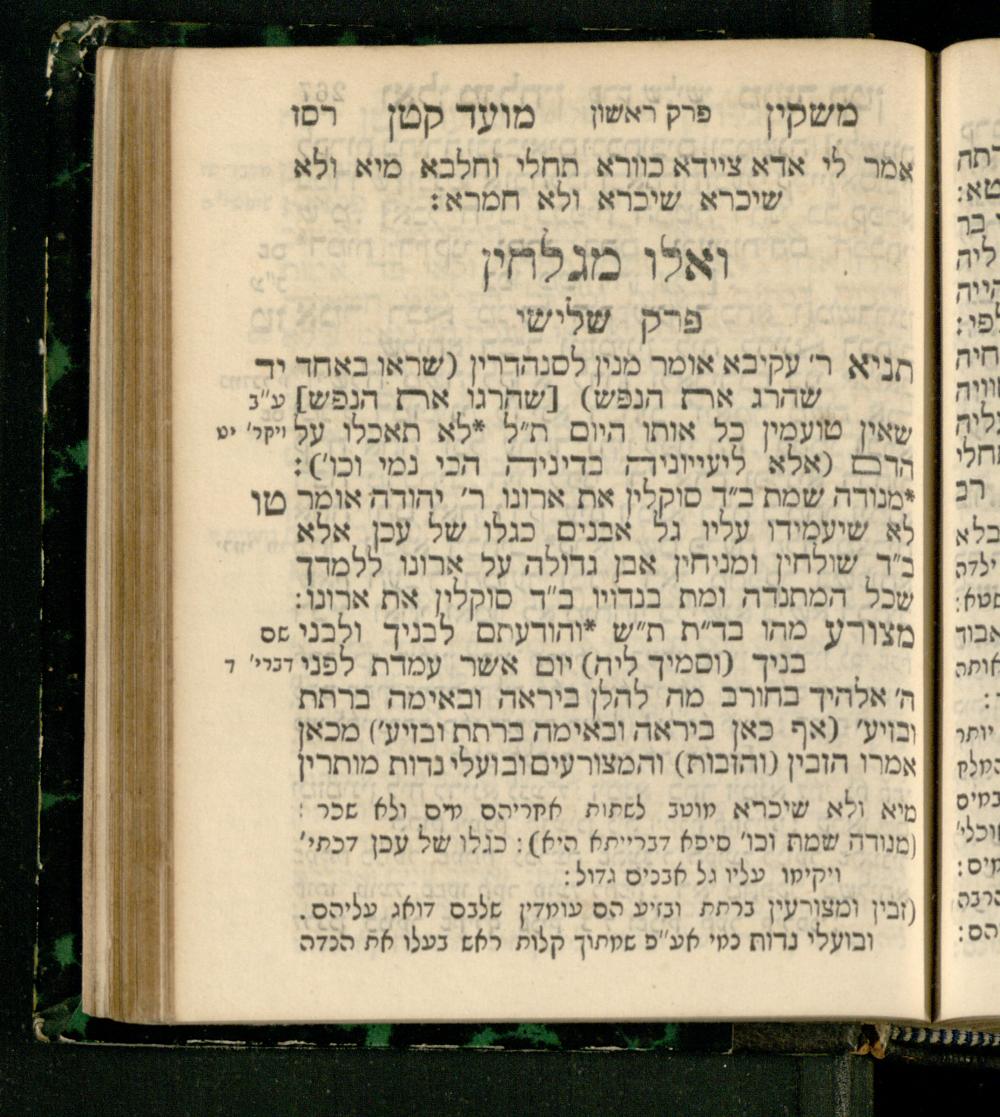 משקין פרק ראשון מועד קטן רסו
אמר לי אדא ציידא כוורא תחלי וחלבא מיא ולא
שיכרא שיכרא ולא חמרא:
ואלו מגלחין
פרק שלישי
תניא ר׳ עקיבא אומר מנין לסנהדרין (שראו באחד יד
שהרג את הנפש) [שהרגו את הנפש] ע"ב
שאין טועמין כל אותו היום ת״ל *לא תאכלו על ויקר' יט
הדם (אלא ליעייוניה בדיניה הכי נמי וכו'):
*מנודה שמת ב״ד סוקלין את ארונו ר׳ יהודה אומר טו
לא שיעמידו עליו גל אבנים כגלו של עכן אלא
ב״ד שולחין ומניחין אבן גדולה על ארונו ללמדך
שכל המתנדה ומת בנדויו ב״ד סוקלין את ארונו:
מצורע מהו בד״ת ת״ש *והודעתם לבניך ולבני שם
בניך (וסמיך ליה) יום אשר עמדת לפני דברי' ד
ה׳ אלהיך בחורב מה להלן ביראה ובאימה ברתת
ובזיע' (אף כאן ביראה ובאימה ברתת ובזיע') מכאן
אמרו הזבין (והזבות) והמצורעים ובועלי נדות מותרין
מיא ולא שיכרא מוטב לשתות אחריהם מים ולא שכר:
(מנודה שמת וכו' סיפא דברייתא היא): כגלו של עכן דכתי'
ויקימו עליו גל אבנים גדול:
(זבין ומצורעין ברתת ובזיע הם עומדין שלבם דואג עליהם.
ובועלי נדות נמי אע"פ שמתוך קלות ראש בעלו את הנדה